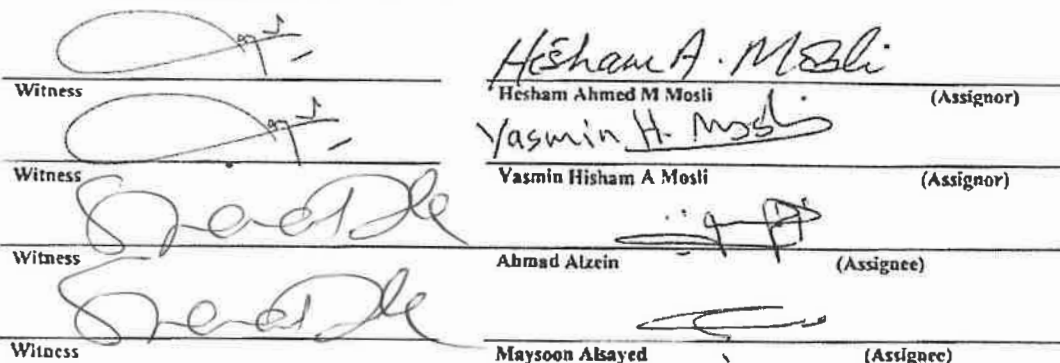 Hisham A. Mosli
Witness Hesham Ahmed M Mosli (Assignor)
Yasmin H. Mosli
Witness Yasmin Hisham A Mosli (Assignor)
Witness Ahmad Alzein (Assignee)
Witness Maysoon Alsayed (Assignee)